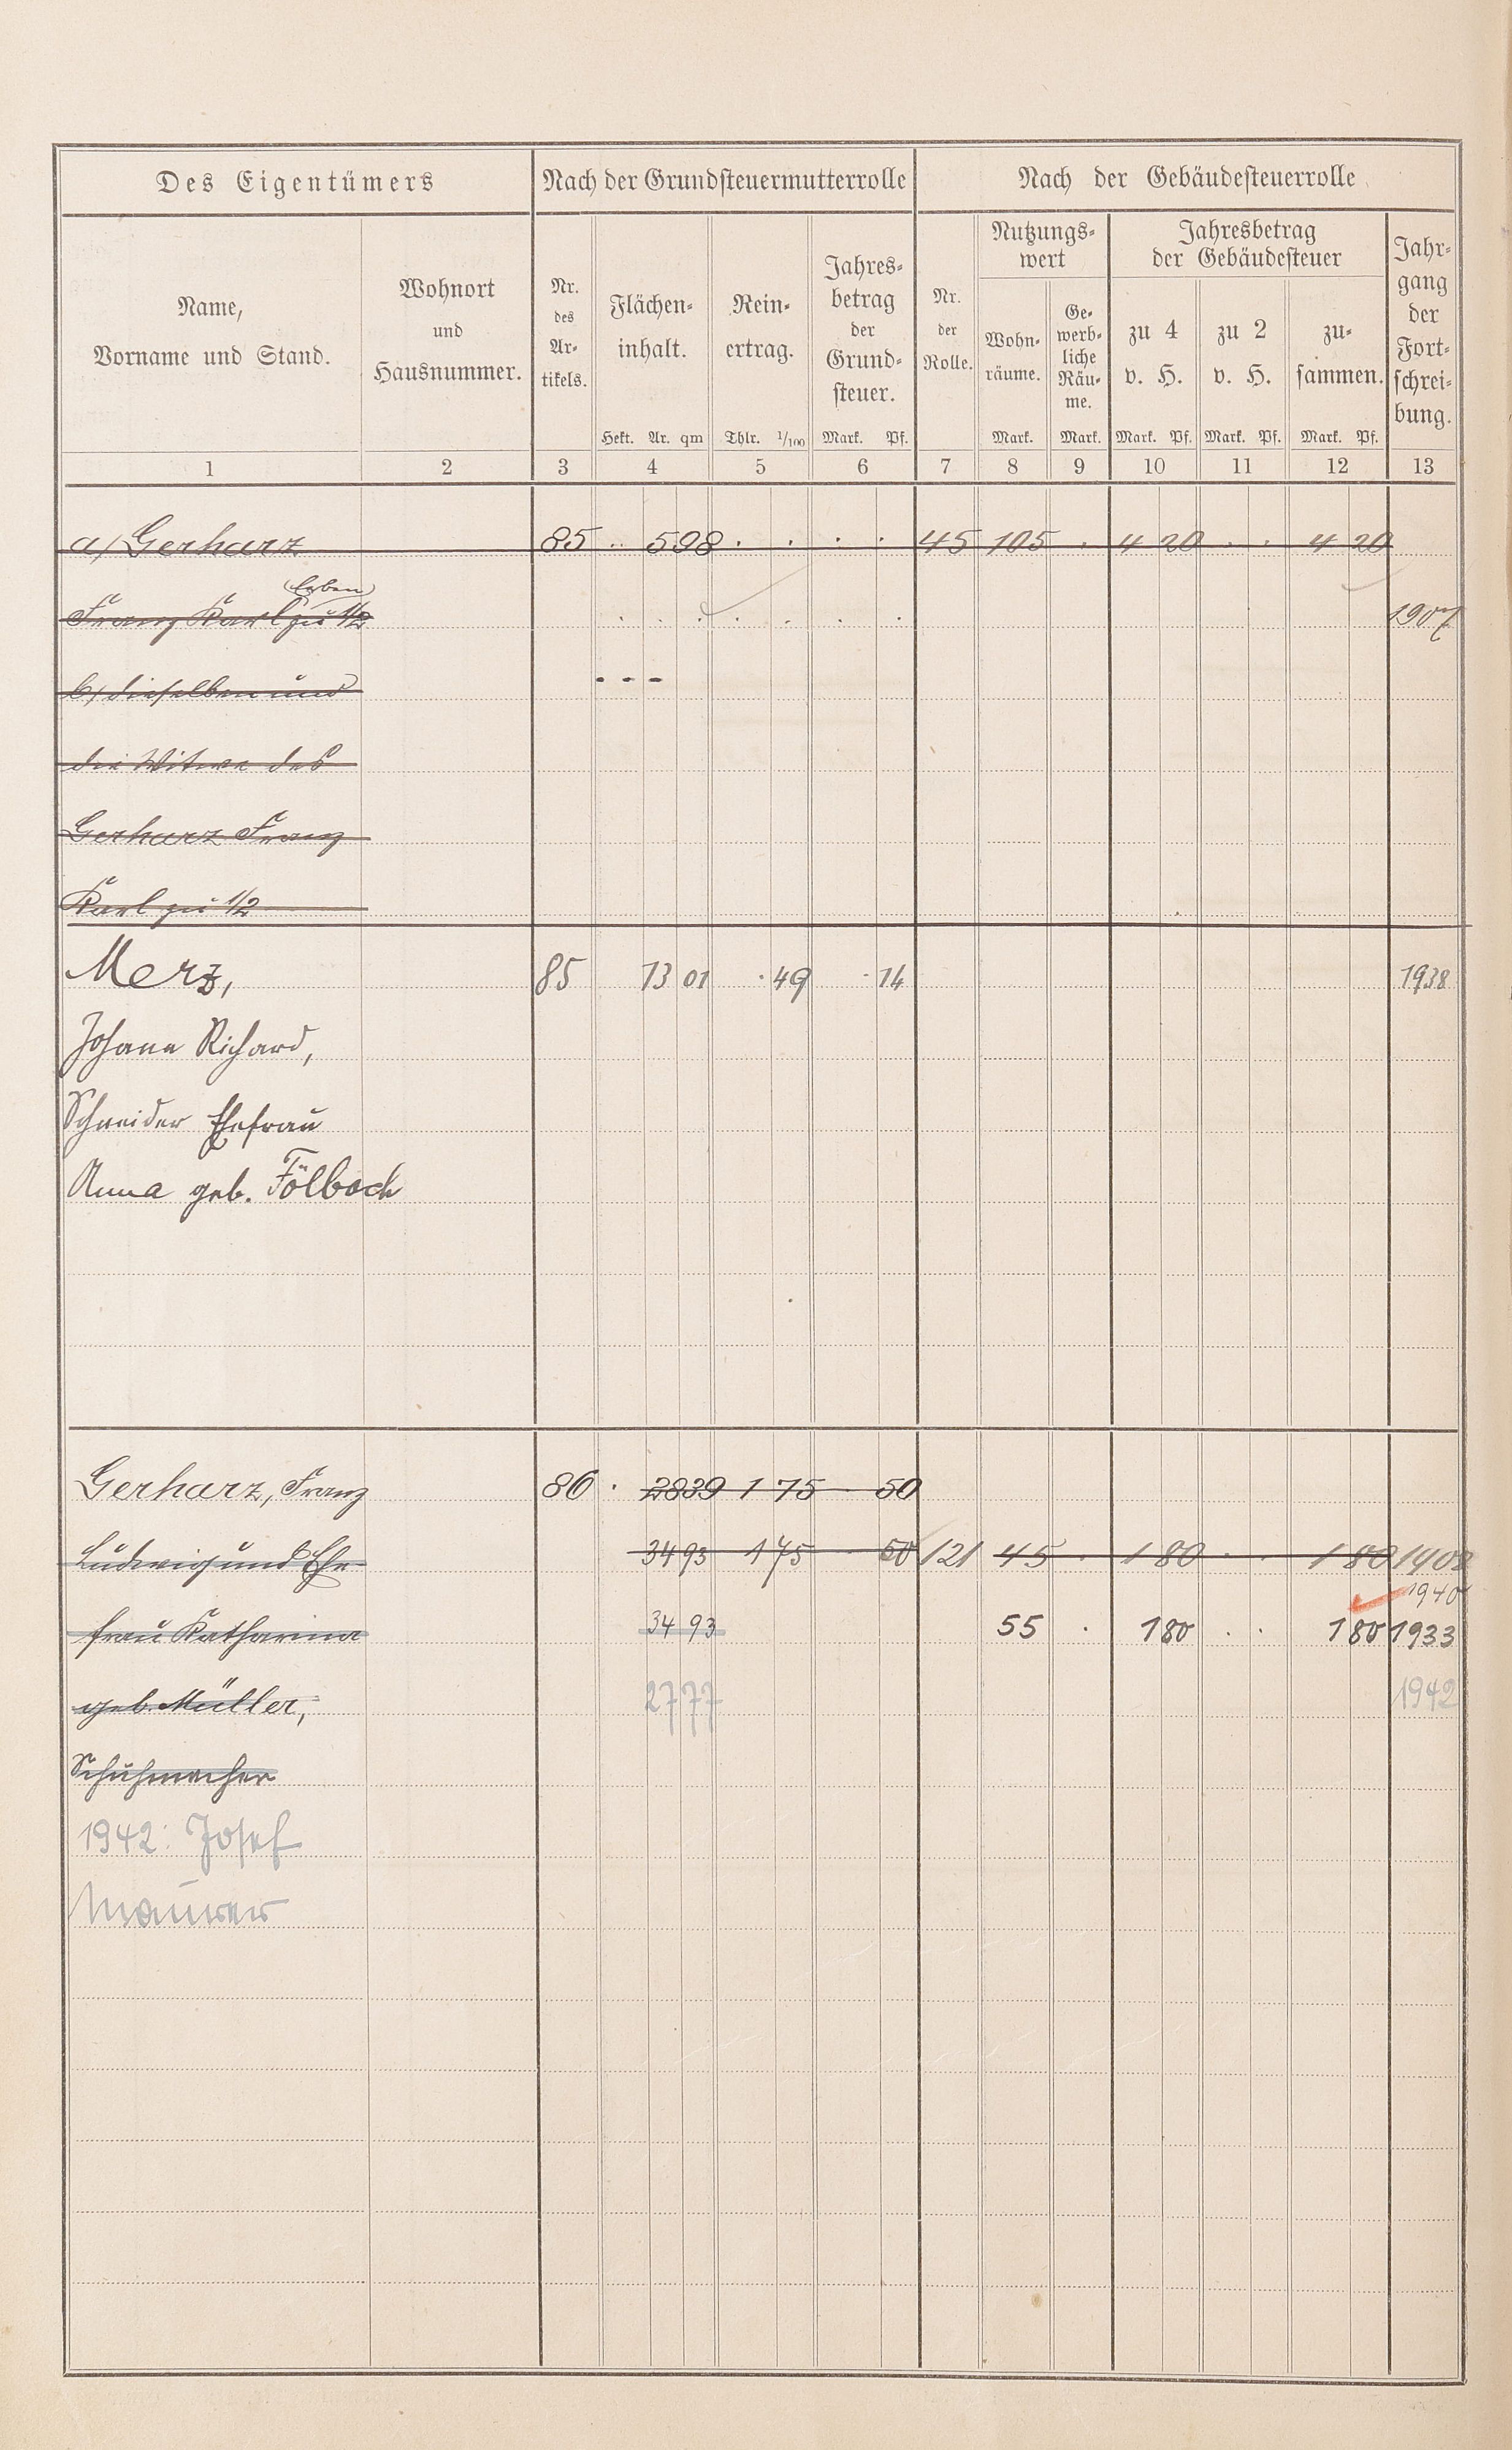 Des Eigentümers Nach der Grundsteuermutterrolle Nach der Gebäudesteuerrolle
Name, Vorname und Stand.
Wohnort und Hausnummer.
Nr. des Ar- tikels.
Flächen- inhalt.
Hekt. Ar. qm
Rein- ertrag.
Thlr. 1/100
Jahres- betrag der Grund- steuer.
Mark. Pf.
Nr. der Rolle.
Nutzungs- wert
Wohn- räume.
Mark.
Ge- werb- liche Räu- me.
Mark.
Jahresbetrag der Gebäudesteuer
zu 4 v. H.
Mark. Pf.
zu 2 v. H.
Mark. Pf.
zu- sammen.
Mark. Pf.
Jahr- gang der Fort- schrei- bung.
1 2 3 4 5 6 7 8 9 10 11 12 13
a) Gerharz 85 . . 598 . . . . 45 105 . 4 20 . . 4 20
Erben
Franz Karl zu 1/2 1907
b) dieselben und - - -
die Witwe des
Gerharz Franz
Karl zu 1/2
Merz, 85 13 01 . 49 . 14 1938
Johann Richard,
Schneider Ehefrau
Anna geb. Fölbach
Gerharz, Franz 86 . 2839 1 75 . 50
Ludwig und Ehe 3493 1 75 . 50 121 45 . 1 80 . . 1 80 1908
1940
frau Katharina 34 93 55 . 1 80 . . 1 80 1933
geb. Müller, 2777 1942
Schuhmacher
1942: Josef
Maurer